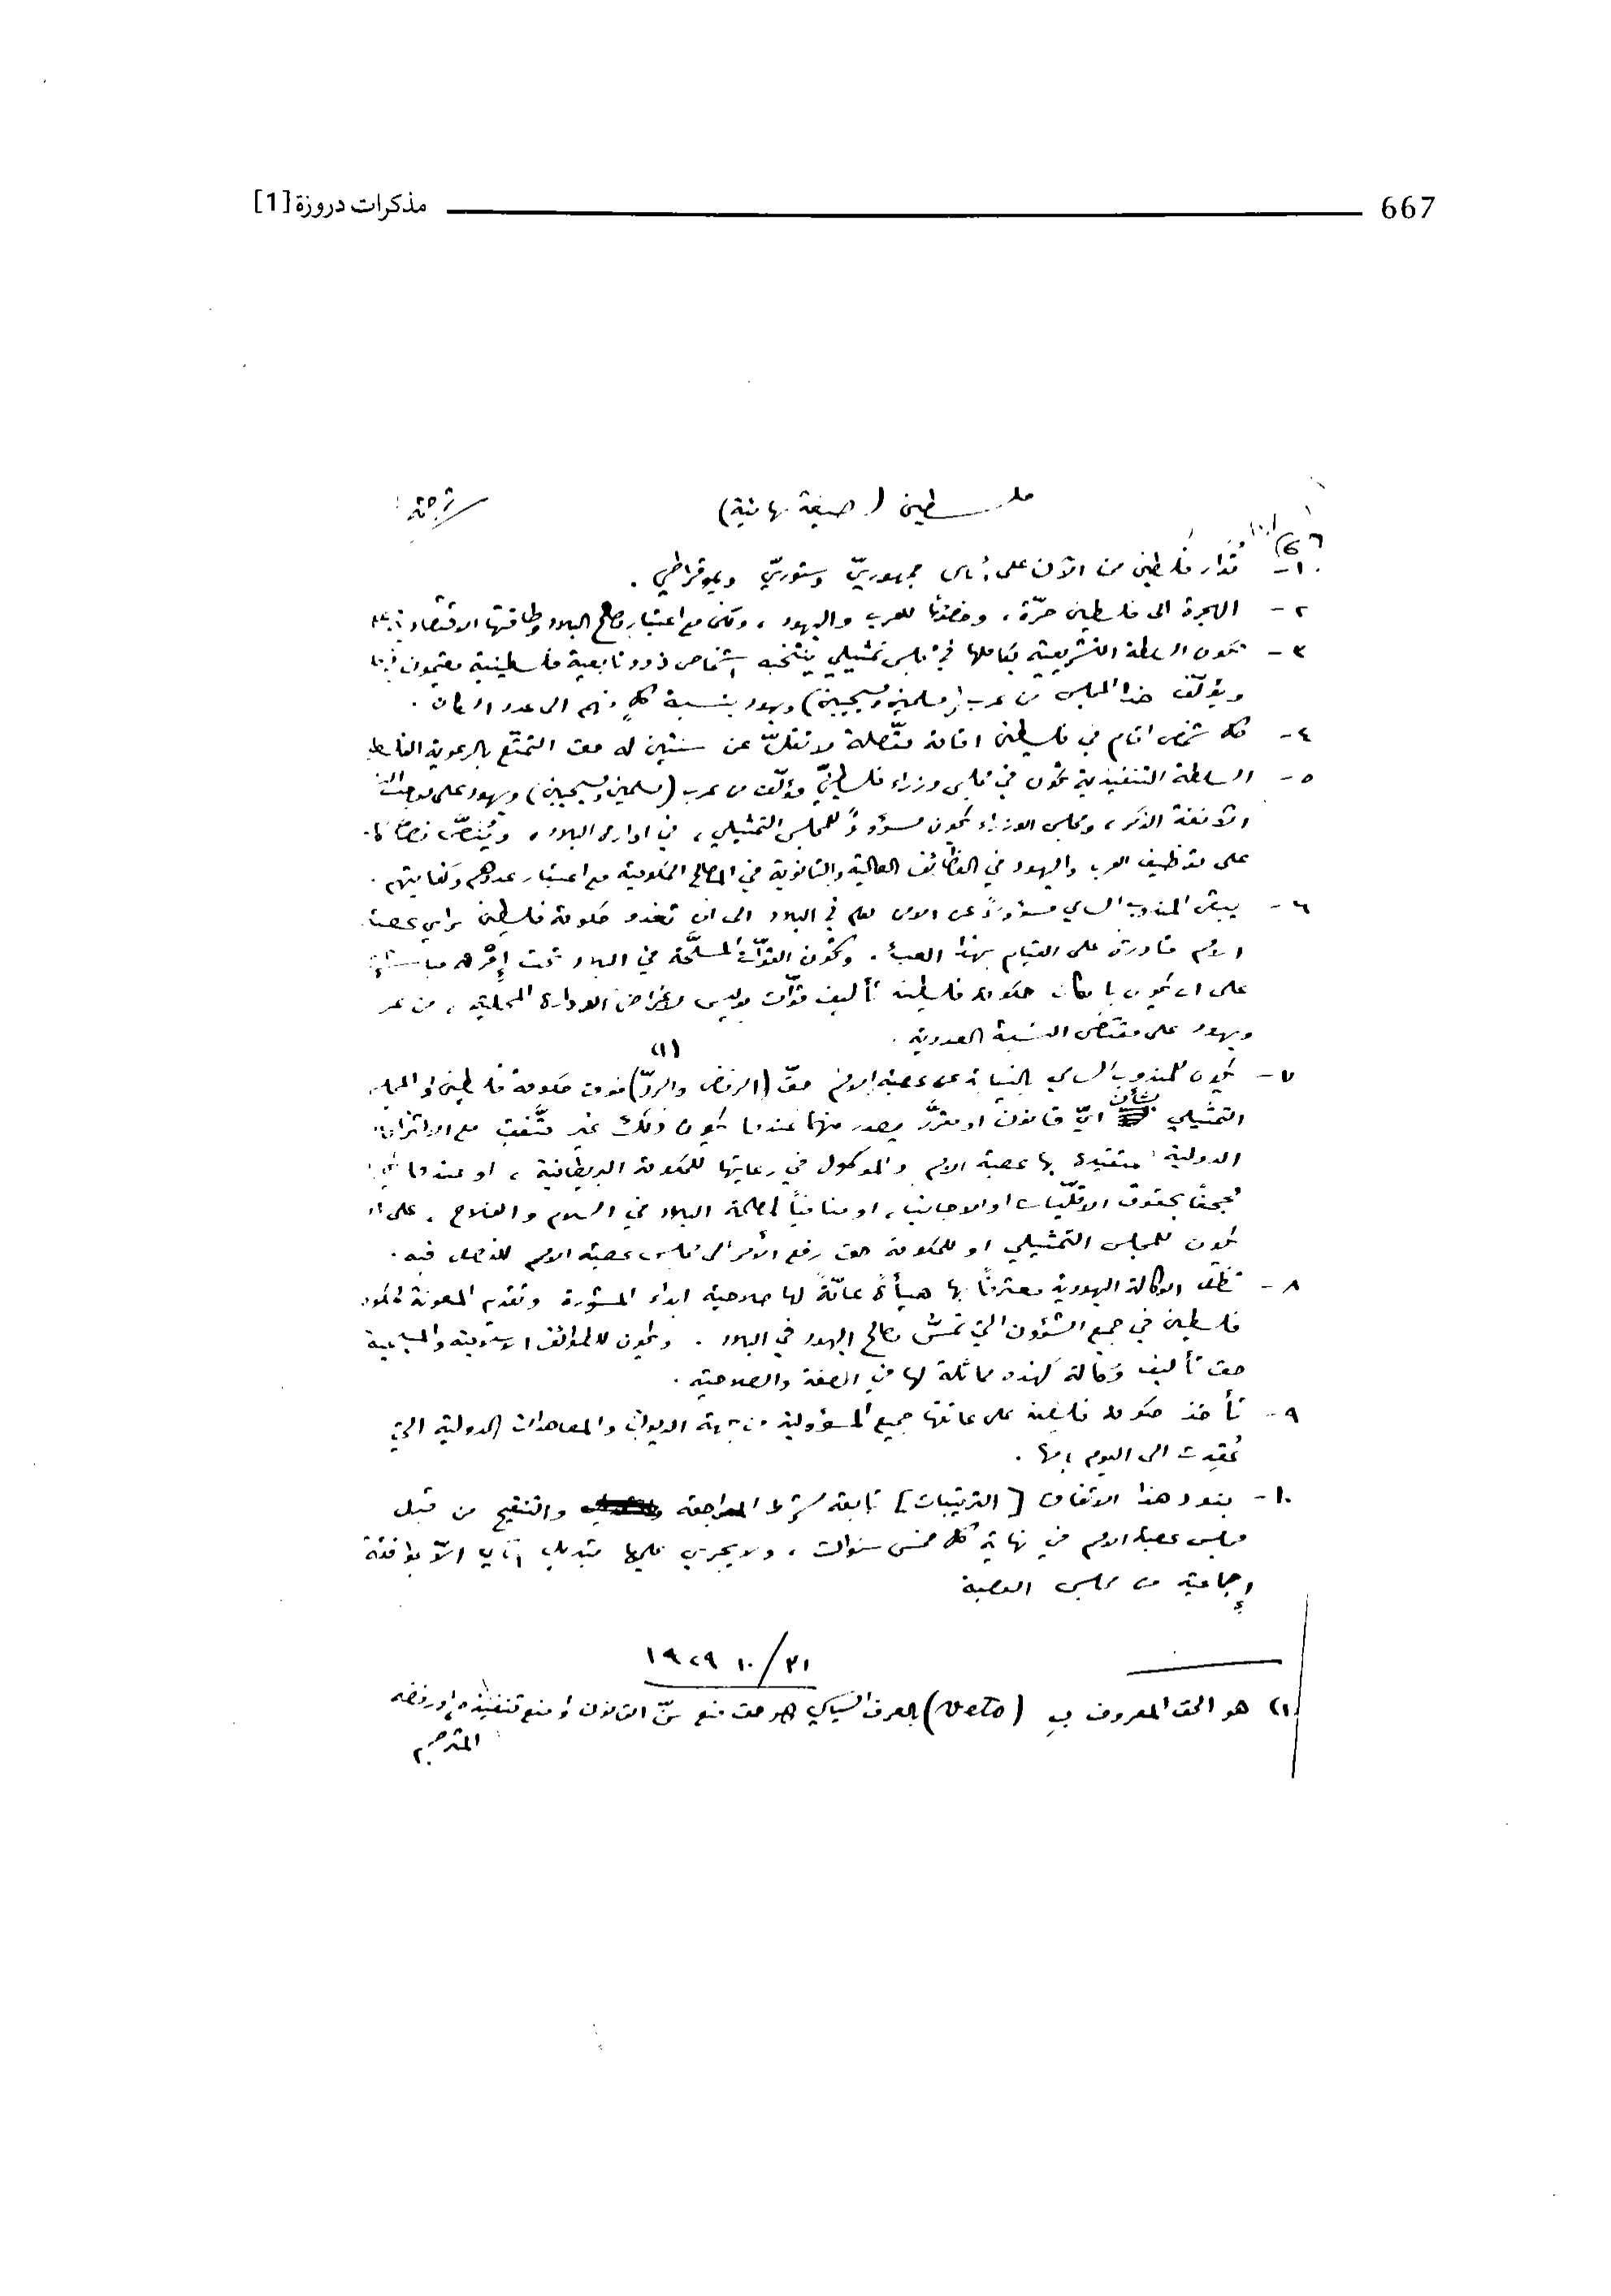 667 مذكرات دروزة [1]
فلسطين (صيغة نهائية) ترجمة:
١- تُدار فلسطين من الآن على أساس جمهوريّ دستوريّ ديموقراطي.
٢- الهجرة الى فلسطين حرّة، وخصوصًا للعرب واليهود، ولكن مع اعتبار مصالح البلاد وطاقتها الاقتصادية
٣- تكون السلطة التشريعية بكاملها في مجلس تمثيلي ينتخبه اشخاص ذوو تابعية فلسطينية مقيمون فيها
ويؤلّف هذا المجلس من عرب (مسلمين ومسيحيين) ويهود بنسبة كلٍ منهم الى عدد السكان.
٤- كل شخص اقام في فلسطين اقامة متّصلة لا تقلّ عن سنتين له حق التمتّع بالرعوية
٥- السلطة التنفيذية تكون في مجلس وزراء فلسطينيّ مؤلّف من عرب (مسلمين ومسيحيين) ويهود على موجب النسبة
الآنفة الذكر، ومجلس الوزراء يكون مسؤولاً للمجلس التمثيلي، في ادارة البلاد، ويُنصّ نصّا
على توظيف العرب واليهود في الوظائف العالية والثانوية في المصالح الحكومية مع اعتبار عددهم وكفايتهم.
٦- يبقى المندوب السامي مسؤولاً عن الامن العام في البلاد الى ان تغدو حكومة فلسطين برأي عصبة
الامم قادرة على القيام بهذا العبء. وتكون القوّات المسلّحة في البلاد تحت إمْرته مباشرة
على ان يكون بامكان حكومة فلسطين تأليف قوّات بوليس لاغراض الادارة المحلية، من عرب
ويهود على مقتضى النسبة العددية.
٧- يكون للمندوب السامي بالنيابة عن عصبة الامم حقّ (الرفض والردّ) (١) فوق حكومة فلسطين او المجلس
التمثيلي بشأن ايّ قانون او مقرّر يصدر منهما عندما يكون ذلك غير متّفق مع الالتزامات
الدولية المتقيدة بها عصبة الامم والموكول في رعايتها للحكومة البريطانية، او عندما
مجحفًا بحقوق الاقلّيات او الاجانب، او منافيًا لمصلحة البلاد في السلام والفلاح. على ان
يكون للمجلس التمثيلي او للحكومة حق رفع الأمر الى مجلس عصبة الامم للفصل فيه.
٨- تظل الوكالة اليهودية معترفًا بها هيأة عامّةً لها صلاحية ابداء المشورة وتقديم المعونة لحكومة
فلسطين في جميع الشؤون التي تمسّ مصالح اليهود في البلاد. ويكون للطوائف الاسلامية والمسيحية
حق تأليف وكالة كهذه مماثلة لها في الصفة والصلاحية.
٩- تأخذ حكومة فلسطين على عاتقها جميع المسؤولية من جهة الديون والمعاهدات الدولية التي
عُقِدت الى اليوم باسمها.
١٠- بنود هذا الاتفاق [الترتيبات] تابعة لشرط المراجعة والتنقيح من قبل
مجلس عصبة الامم في نهاية كل خمس سنوات، ولا يجري عليها تبديل إلاّ بموافقة
إجماعية من مجلس العصبة
٣١/١٠ ١٩٢٩
(١) هو الحق المعروف بـ (veto) بالعرف السياسي هو حق منع سنّ القانون أو منع تنفيذه او رفضه
المترجم